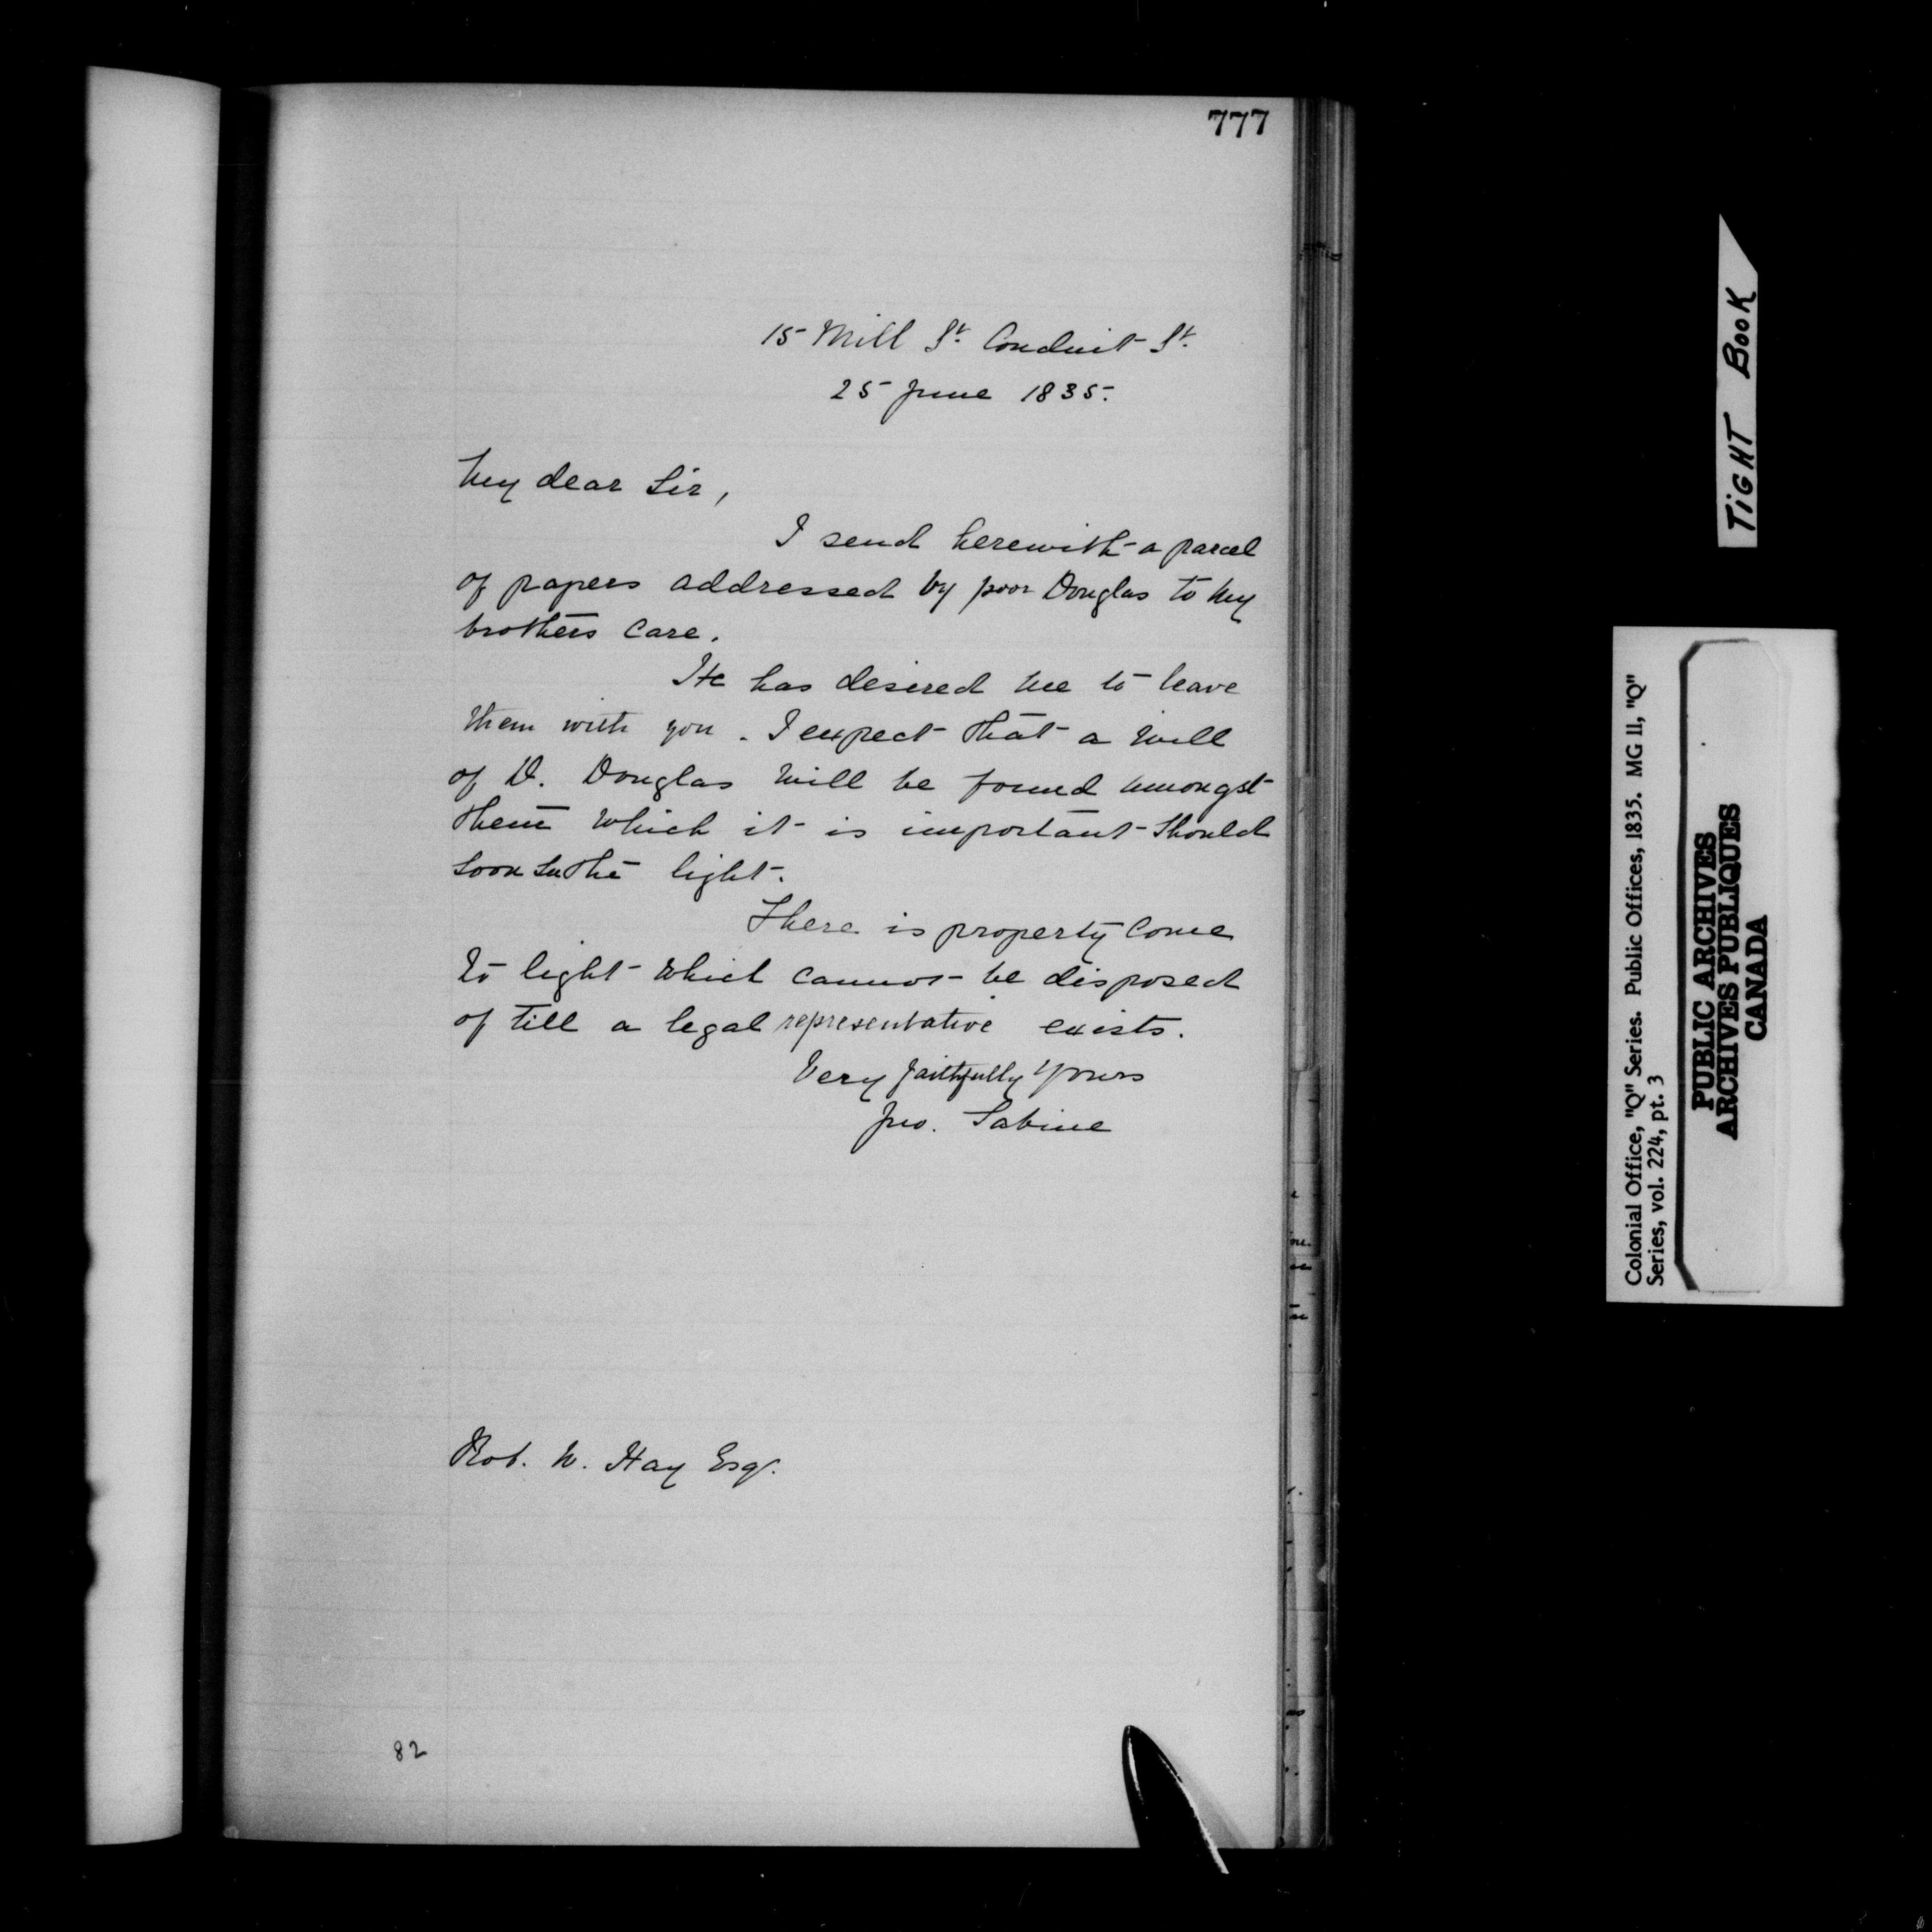 777
15 Mill St. Conduit St.
25 June 1835.
My dear Sir,
I send herewith a parcel
of papers addressed by poor Douglas to my
brothers care.
He has desired me to leave
them with you. I expect that a Will
of D. Douglas Will be found amongst
them Which it is important Should
soon see the light.
There is property Come
to light Which cannot be disposed
of till a legal representative exists.
Very faithfully Yours
Jno. Sabine
Rob. W. Hay Esqr.
82
TIGHT BOOK
Colonial Office, "Q" Series. Public Offices, 1835. MG 11, "Q"
Series, vol. 224, pt. 3
PUBLIC ARCHIVES
ARCHIVES PUBLIQUES
CANADA